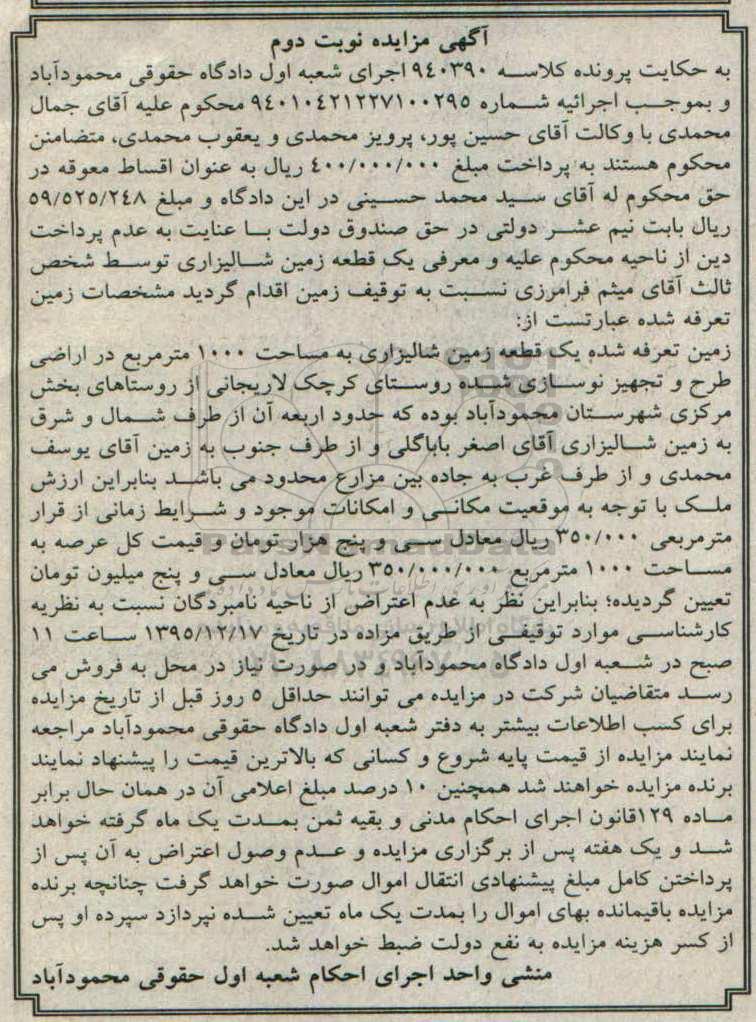 آگهی مزایده نوبت دوم
به حکایت پرونده کلاسه ۹٤۰۳۹۰ اجرای شعبه اول دادگاه حقوقی محمودآباد
و بموجب اجرائیه شماره ۹٤۰۱۰٤۲۱۲۲۷۱۰۰۲۹۵ محکوم علیه آقای جمال
محمدی با وکالت آقای حسین پور، پرویز محمدی و یعقوب محمدی، متضامنن
محکوم هستند به پرداخت مبلغ ٤۰۰/۰۰۰/۰۰۰ ریال به عنوان اقساط معوقه در
حق محکوم له آقای سید محمد حسینی در این دادگاه و مبلغ ۵۹/۵۲۵/۲٤۸
ریال بابت نیم عشر دولتی در حق صندوق دولت با عنایت به عدم پرداخت
دین از ناحیه محکوم علیه و معرفی یک قطعه زمین شالیزاری توسط شخص
ثالث آقای میثم فرامرزی نسبت به توقیف زمین اقدام گردید مشخصات زمین
تعرفه شده عبارتست از:
زمین تعرفه شده یک قطعه زمین شالیزاری به مساحت ۱۰۰۰ مترمربع در اراضی
طرح و تجهیز نوسازی شده روستای کرچک لاریجانی از روستاهای بخش
مرکزی شهرستان محمودآباد بوده که حدود اربعه آن از طرف شمال و شرق
به زمین شالیزاری آقای اصغر باباگلی و از طرف جنوب به زمین آقای یوسف
محمدی و از طرف غرب به جاده بین مزارع محدود می باشد بنابراین ارزش
ملک با توجه به موقعیت مکانی و امکانات موجود و شرایط زمانی از قرار
مترمربعی ۳۵۰/۰۰۰ ریال معادل سی و پنج هزار تومان و قیمت کل عرصه به
مساحت ۱۰۰۰ مترمربع ۳۵۰/۰۰۰/۰۰۰ ریال معادل سی و پنج میلیون تومان
تعیین گردیده؛ بنابراین نظر به عدم اعتراض از ناحیه نامبردگان نسبت به نظریه
کارشناسی موارد توقیفی از طریق مزاده در تاریخ ۱۳۹۵/۱۲/۱۷ ساعت ۱۱
صبح در شعبه اول دادگاه محمودآباد و در صورت نیاز در محل به فروش می
رسد متقاضیان شرکت در مزایده می توانند حداقل ۵ روز قبل از تاریخ مزایده
برای کسب اطلاعات بیشتر به دفتر شعبه اول دادگاه حقوقی محمودآباد مراجعه
نمایند مزایده از قیمت پایه شروع و کسانی که بالاترین قیمت را پیشنهاد نمایند
برنده مزایده خواهند شد همچنین ۱۰ درصد مبلغ اعلامی آن در همان حال برابر
ماده ۱۲۹قانون اجرای احکام مدنی و بقیه ثمن بمدت یک ماه گرفته خواهد
شد و یک هفته پس از برگزاری مزایده و عدم وصول اعتراض به آن پس از
پرداختن کامل مبلغ پیشنهادی انتقال اموال صورت خواهد گرفت چنانچه برنده
مزایده باقیمانده بهای اموال را بمدت یک ماه تعیین شده نپردازد سپرده او پس
از کسر هزینه مزایده به نفع دولت ضبط خواهد شد.
منشی واحد اجرای احکام شعبه اول حقوقی محمودآباد